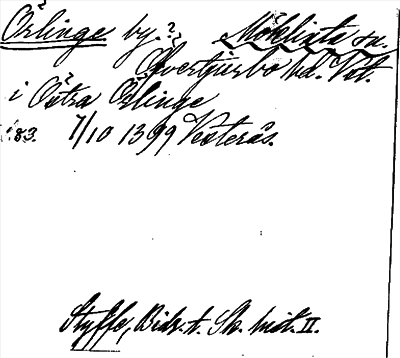 Örlinge by.? Möklinta sn.
Övertjurbo hd. Vstl.
i Östra Örlinge
s. 83. 7/10 1399 Vesterås.
Styffe, Bidr. t. Sk. hist. II.